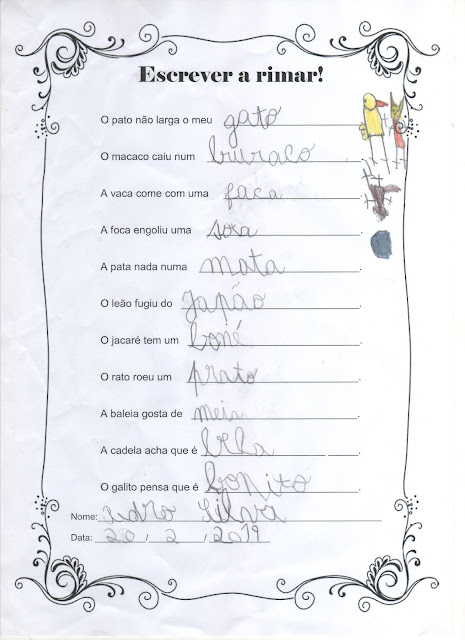 Escrever a rimar!
O pato não larga o meu gato.
O macaco caiu num buraco.
A vaca come com uma faca.
A foca engoliu uma
A pata nada numa mata.
O leão fugiu do Japão.
O jacaré tem um boné.
O rato roeu um prato.
A baleia gosta de meia.
A cadela acha que é bela.
O galito pensa que é bonito.
Nome: Pedro Silva
Data: 20 / 2 / 2019